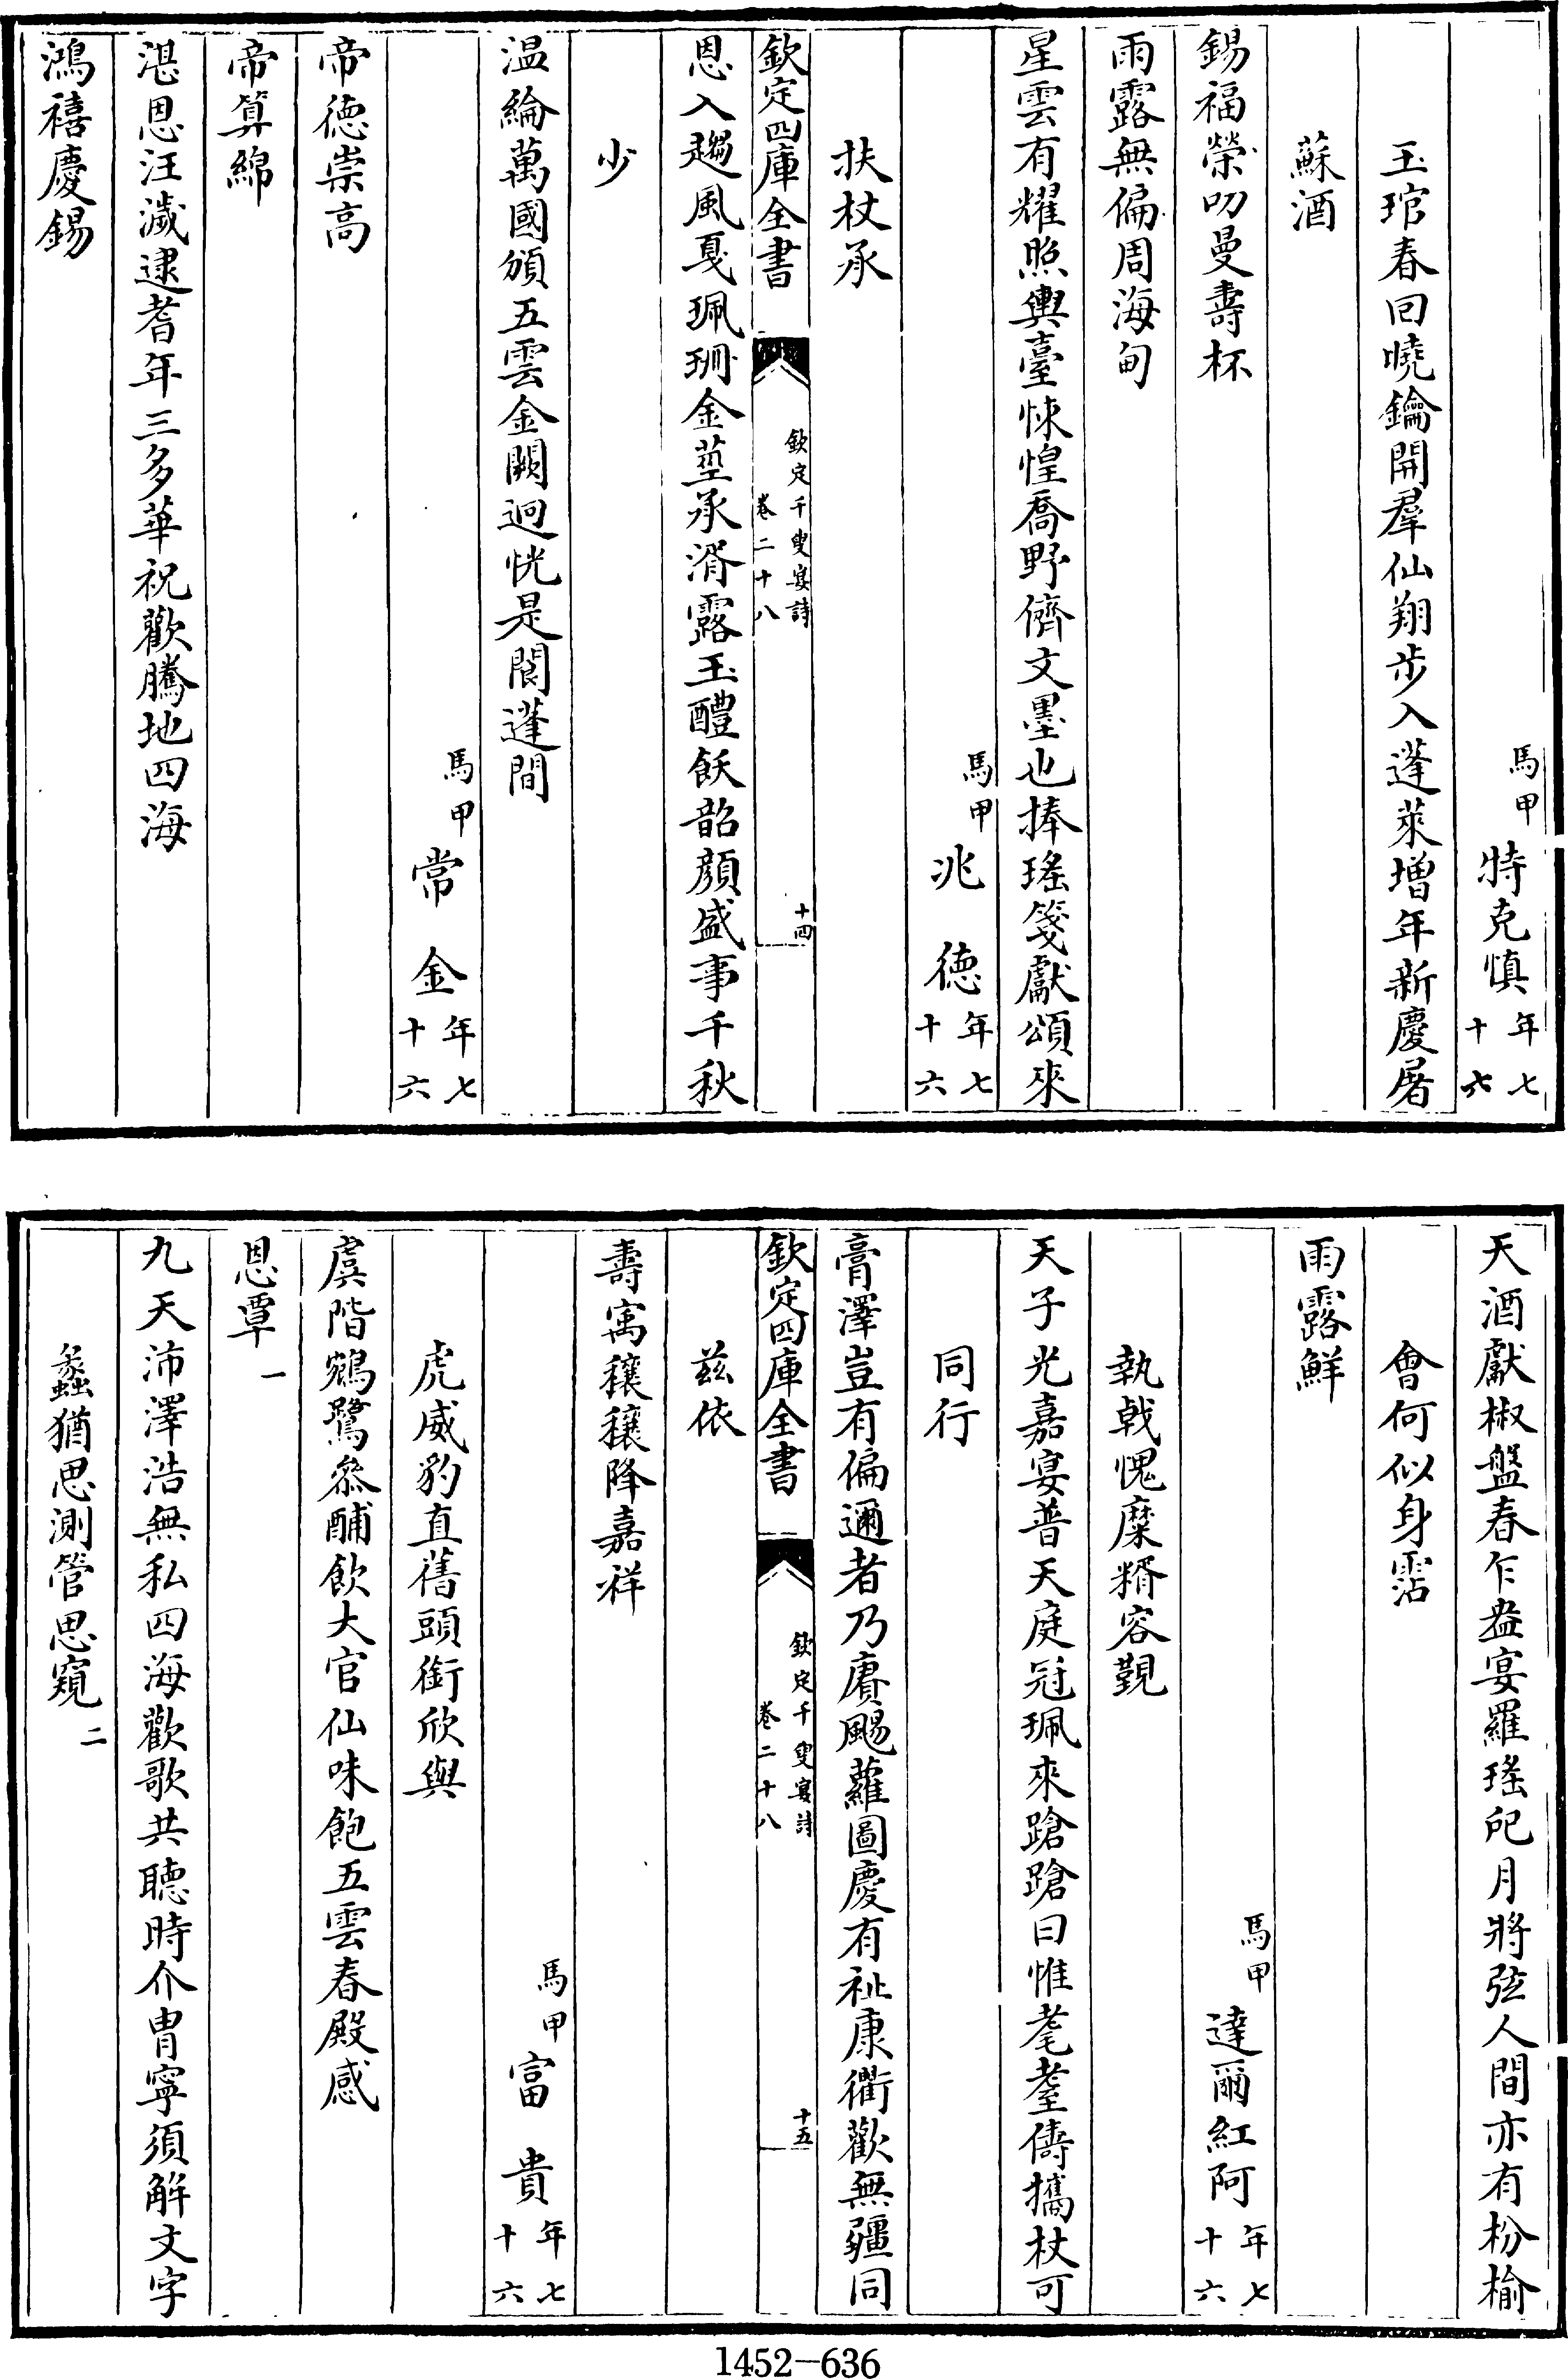 馬甲特克慎年七十六
玉琯春回曉鑰開羣仙翔步入蓬萊增年新慶屠
蘇酒
錫福榮叨曼壽杯
雨露無偏周海甸
星雲有耀照輿臺悚惶喬野儕文墨也捧瑤箋獻頌來
馬甲兆德年七十六
扶杖承
欽定四庫全書
欽定千叟宴詩
卷二十八
十四
恩入趨風戛珮珊金莖承湑露玉醴飫韶顏盛事千秋
少
温綸萬國頒五雲金闕迥恍是閬蓬間
馬甲常金年七十六
帝德崇高
帝算綿
湛恩汪濊逮耆年三多華祝歡騰地四海
鴻禧慶錫
天酒獻椒盤春乍盎宴羅瑤戺月將弦人間亦有枌榆
會何似身霑
雨露鮮
馬甲達爾紅阿年七十六
執戟愧糜糈容覲
天子光嘉宴普天庭冠珮來蹌蹌曰惟耄耋儔攜杖可
同行
膏澤豈有偏邇者乃賡颺蘿圖慶有祉康衢歡無疆同
欽定四庫全書
欽定千叟宴詩
卷二十八
十五
兹依
壽寓穰穰降嘉祥
馬甲富貴年七十六
虎威豹直舊頭銜欣與
虞階鵷鷺叅酺飲大官仙味飽五雲春殿感
恩覃一
九天沛澤浩無私四海歡歌共聽時介胄寧須解文字
蠡猶思測管思窺二
1452-636